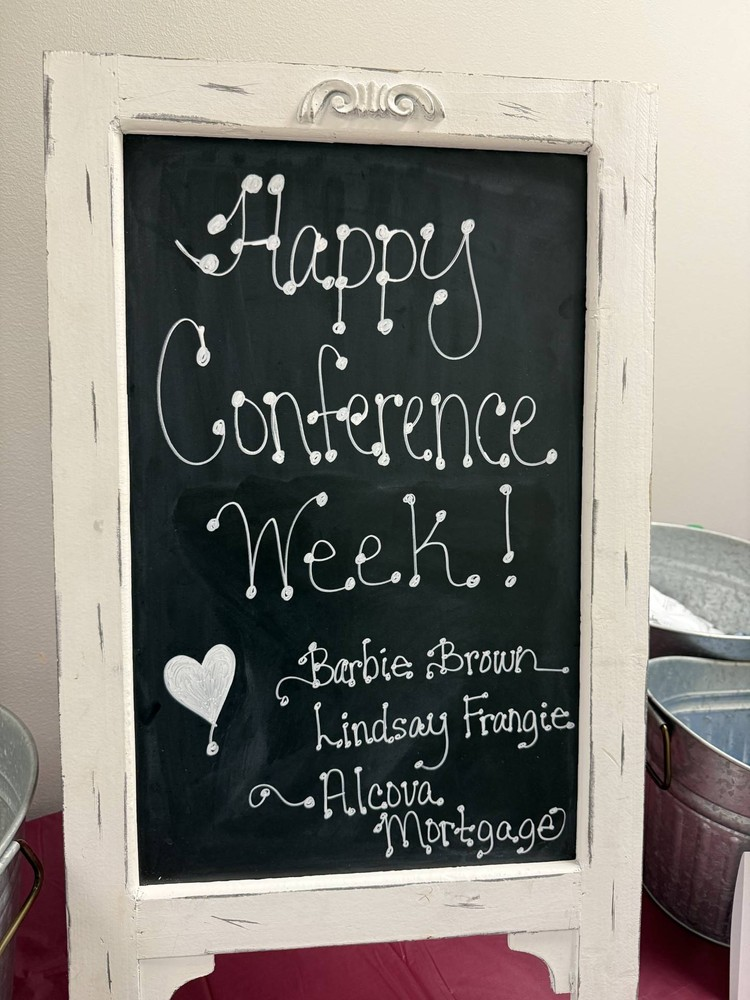 Happy
Conference
Week!
Barbie Brown
Lindsay Frangie
Alcova
Mortgage